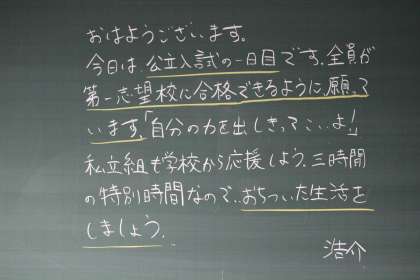 おはようございます。
今日は、公立入試の一日目です。全員が
第一志望校に合格できるように、願って
います。「自分の力を出しきってこいよ!」
私立組も学校から応援しよう。三時間
の特別時間なので、おちついた生活を
しましょう。
浩介